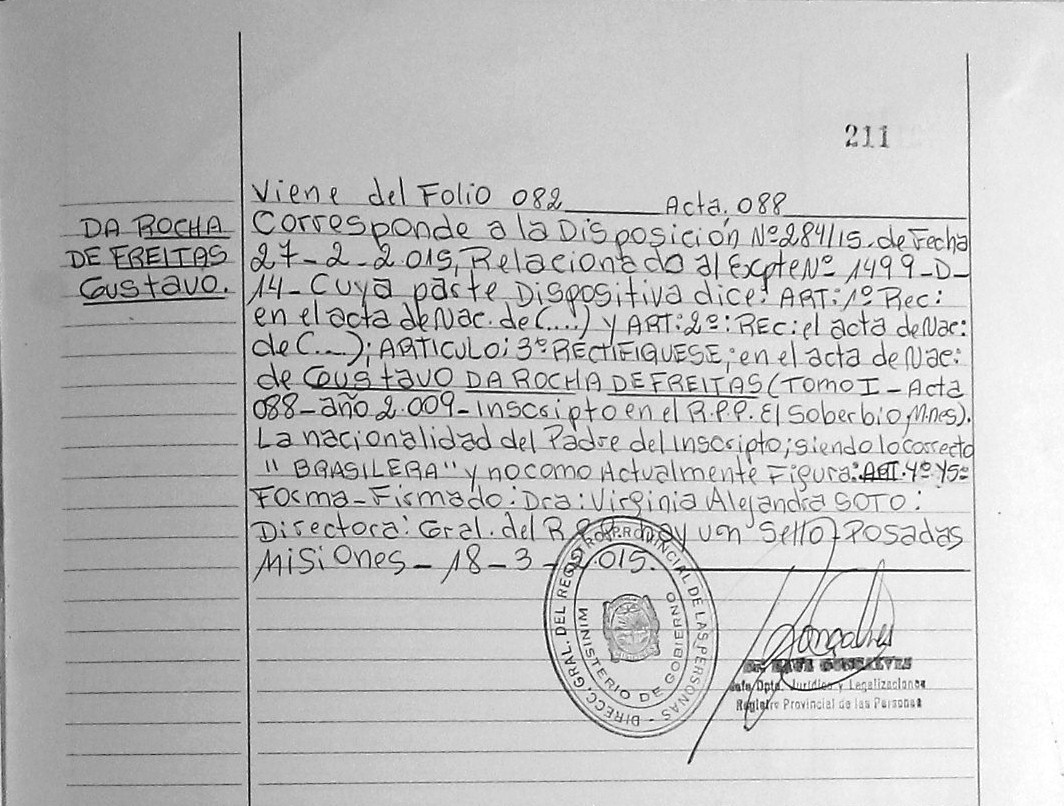 211
Viene del Folio 082 Acta, 088
DA ROCHA
DE FREITAS
Gustavo.
Corresponde a la Disposición Nº 284/15. de Fecha
27-2-2.015, Relacionado al Expte Nº 1499-D-
14- Cuya parte Dispositiva dice: ART: 1º Rec:
en el acta de Nac. de (....) y ART: 2º: REC: el acta de Nac:
de (....); ARTICULO: 3º RECTIFIQUESE; en el acta de Nac:
de Gustavo DA ROCHA DE FREITAS (TOMO I - Acta
088-año 2.009-Inscripto en el R.P.P. El Soberbio, M.nes).
La nacionalidad del Padre del Inscripto; siendo lo correcto
"BRASILERA" y no como Actualmente Figura: ART. 4º Y 5º
Forma- Firmado: Dra: Virginia Alejandra SOTO:
Directora: Gral. del R.P.P. hay un Sello- POSADAS
MISIONES- 18-3-2.015.
DIRECC. GRAL. DEL REGISTRO PROVINCIAL DE LAS PERSONAS
MINISTERIO DE GOBIERNO
Gonçalves
GONCALVES
Jefe Dpto. Jurídico y Legalizaciones
Registro Provincial de las Personas